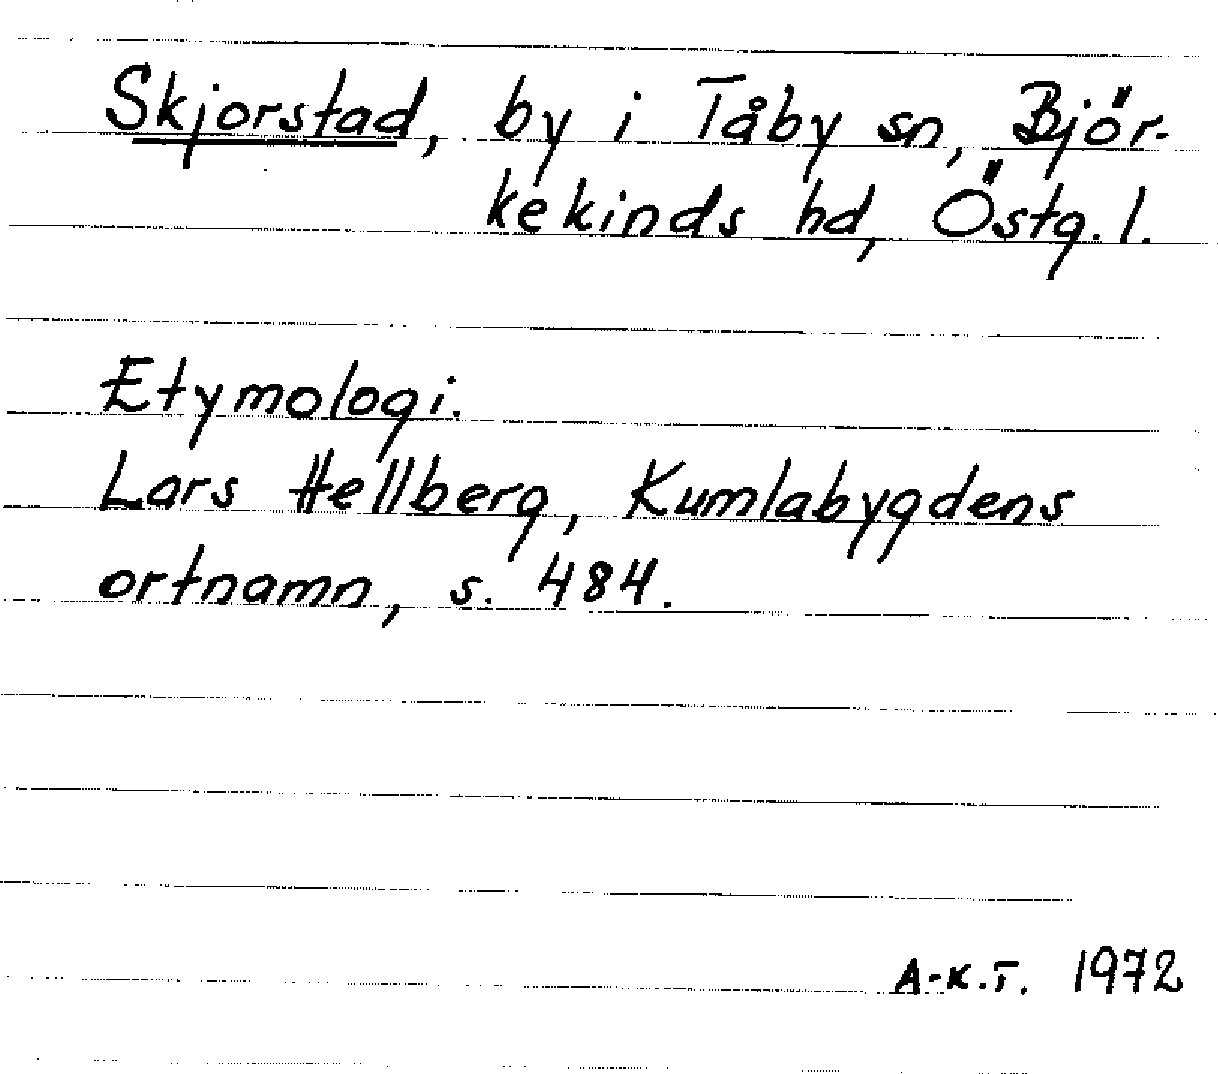 Skjorstad, by i Tåby sn, Björ-
kekinds hd, Östg. l.
Etymologi.
Lars Hellberg, Kumlabygdens
ortnamn, s. 484.
A-K.T. 1972